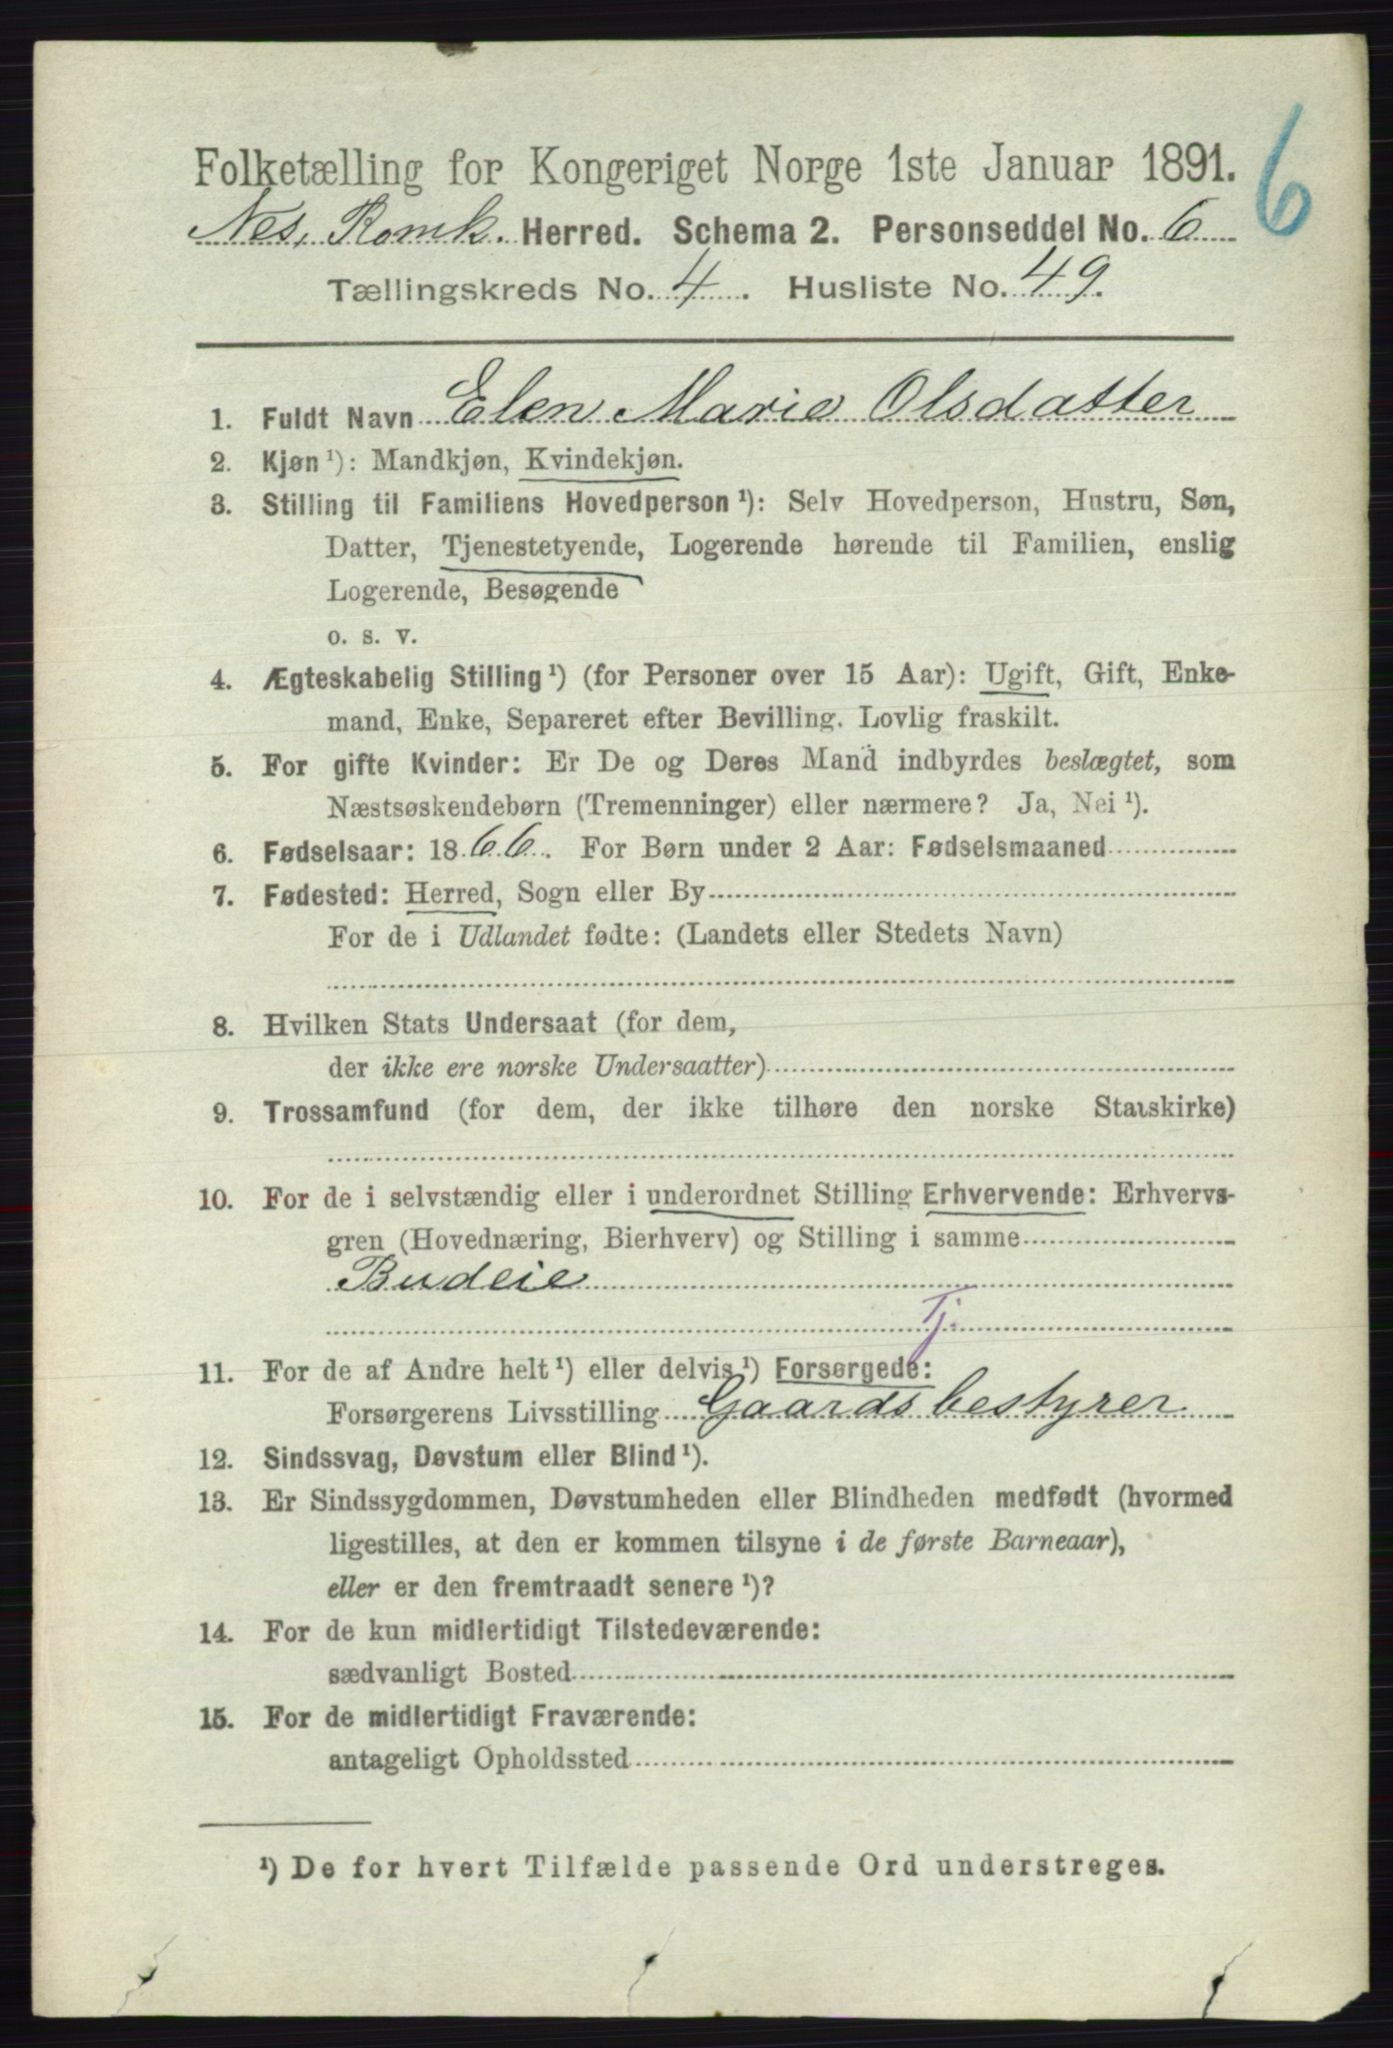 6
Folketælling for Kongeriget Norge 1ste Januar 1891.
Nes, Romk. Herred. Schema 2. Personseddel No. 6
Tællingskreds No. 4. Husliste No. 49.
1. Fuldt Navn Elen Marie Olsdatter
2. Kjøn ¹): Mandkjøn, Kvindekjøn.
3. Stilling til Familiens Hovedperson ¹): Selv Hovedperson, Hustru, Søn,
Datter, Tjenestetyende, Logerende hørende til Familien, enslig
Logerende, Besøgende
o. s. v.
4. Ægteskabelig Stilling ¹) (for Personer over 15 Aar): Ugift, Gift, Enke-
mand, Enke, Separeret efter Bevilling. Lovlig fraskilt.
5. For gifte Kvinder: Er De og Deres Mand indbyrdes beslægtet, som
Næstsøskendebørn (Tremenninger) eller nærmere? Ja, Nei ¹).
6. Fødselsaar: 1866. For Børn under 2 Aar: Fødselsmaaned
7. Fødested: Herred, Sogn eller By
For de i Udlandet fødte: (Landets eller Stedets Navn)
8. Hvilken Stats Undersaat (for dem,
der ikke ere norske Undersaatter)
9. Trossamfund (for dem, der ikke tilhøre den norske Statskirke)
10. For de i selvstændig eller i underordnet Stilling Erhvervende: Erhvervs-
gren (Hovednæring, Bierhverv) og Stilling i samme
Budeie
Tj.
11. For de af Andre helt ¹) eller delvis ¹) Forsørgede:
Forsørgerens Livsstilling Gaardsbestyrer
12. Sindssvag, Døvstum eller Blind ¹).
13. Er Sindssygdommen, Døvstumheden eller Blindheden medfødt (hvormed
ligestilles, at den er kommen tilsyne i de første Barneaar),
eller er den fremtraadt senere ¹)?
14. For de kun midlertidigt Tilstedeværende:
sædvanligt Bosted
15. For de midlertidigt Fraværende:
antageligt Opholdssted
¹) De for hvert Tilfælde passende Ord understreges.